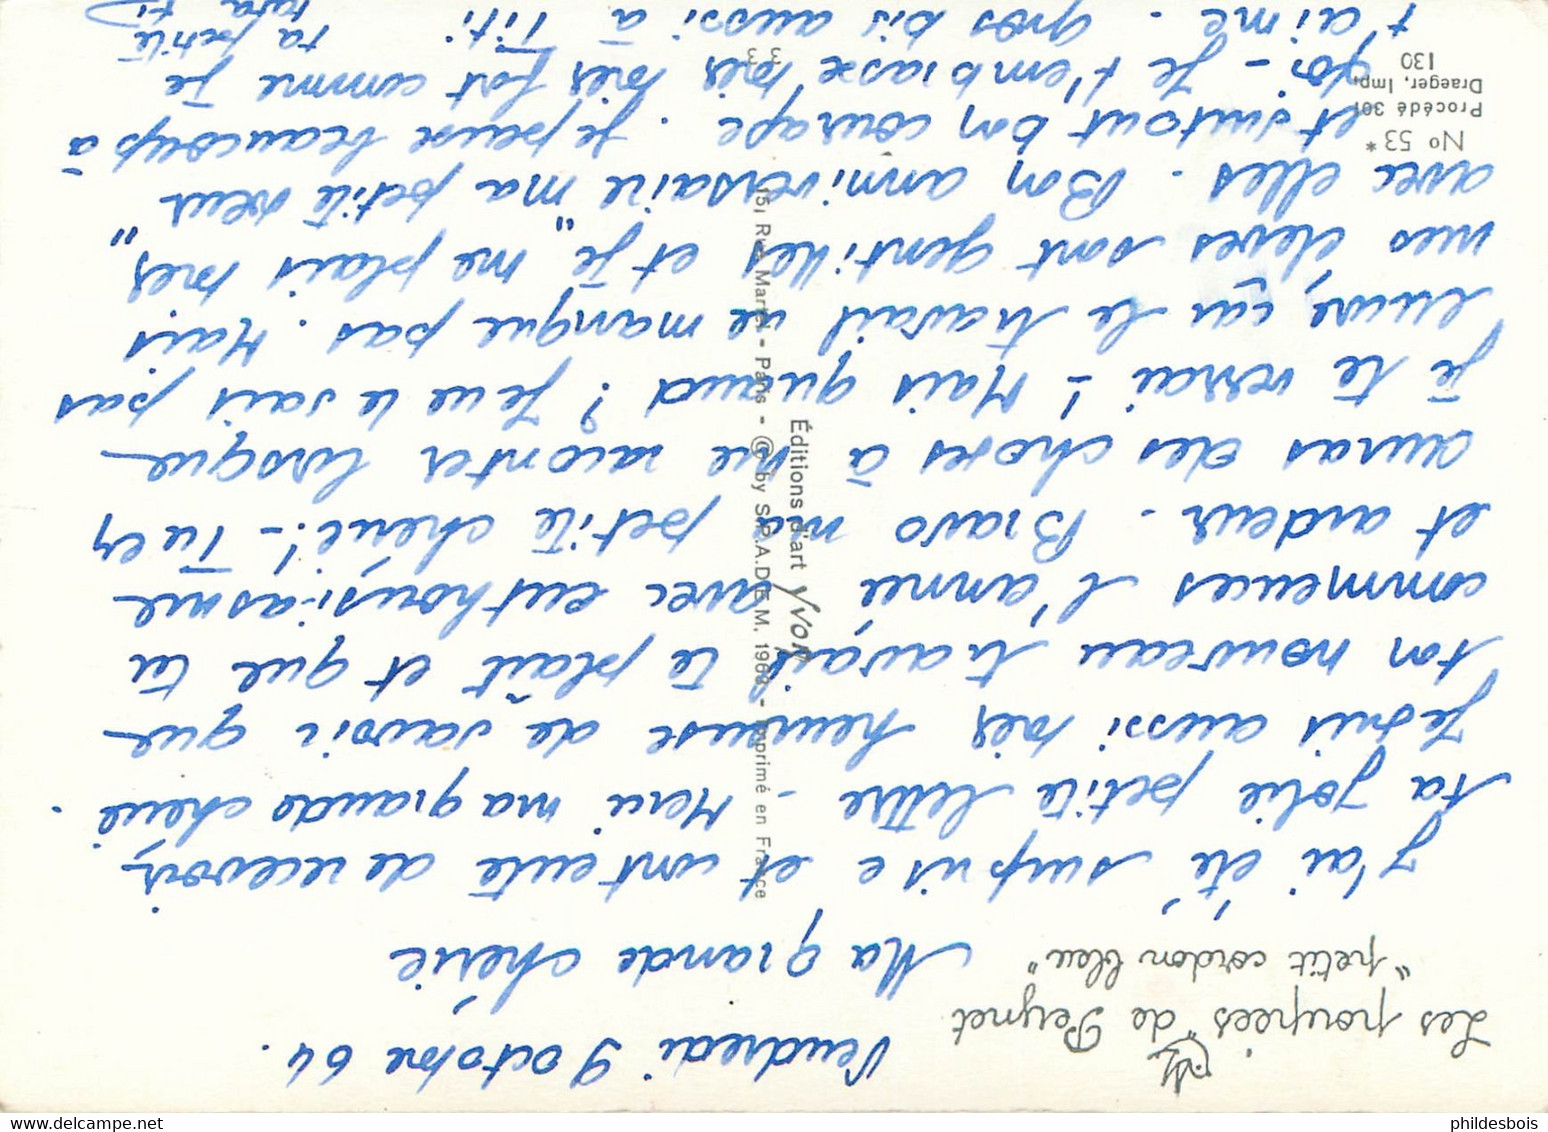 Les poupées de Peynet
"petit cordon bleu"
Vendredi 9 octobre 64.
Ma grande chérie
J'ai été surprise et contente de recevoir
ta jolie petite lettre - Merci ma grande chérie.
Je suis aussi très heureuse de savoir que
ton nouveau travail te plaît et que tu
commences l'année avec enthousiasme
et ardeur. Bravo ma petite chérie! - Tu
auras des choses à me raconter lorsque
je te verrai! - Mais quand? Je ne le sais pas
car le travail ne manque pas. Mais
mes élèves sont gentilles et je "me plais très"
avec elles. Bon anniversaire ma petite sœur
et surtout bon courage. Je pense beaucoup à
toi - Je t'embrasse très très fort comme je
t'aime. gros bis aussi à Titi. ta petite
tata
No 53*
Procédé 301
Draeger, Imp.
130
Éditions d'art YVON
15, Rue Martel - Paris - © by S.P.A.D.E.M. 1963 - Imprimé en France
3 3
phildesbois